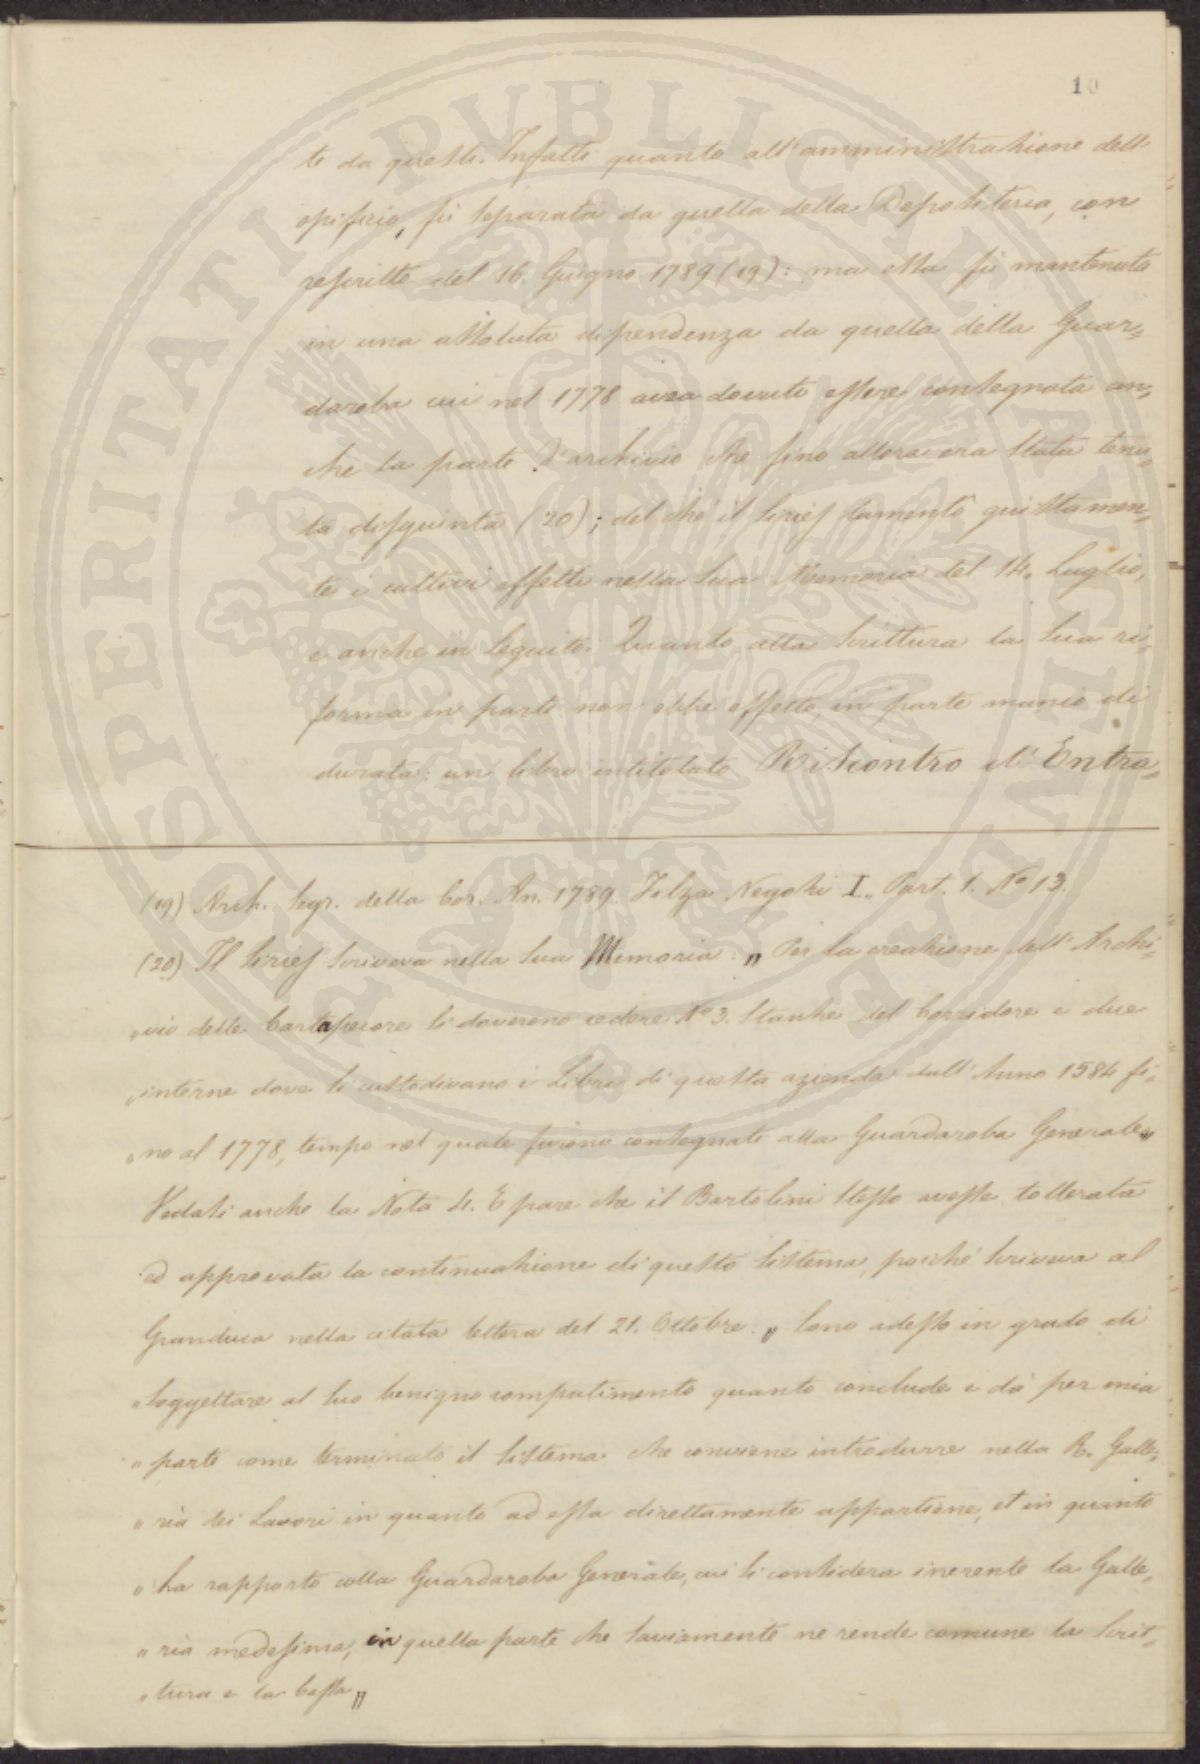 10
te da questi. Infatti quanto all'amministrazione dell'
opificio, fù separata da quella della Depositeria, con
rescritto del 16. Giugno 1789 (19): ma essa fù mantenuta
in una assoluta dipendenza da quella della Guar=
daroba cui nel 1778 avea dovuto essere consegnata an=
che la parte d'archivio che fino allora era stata tenu=
ta disgiunta (20); del che il Siries lamentò giustamen=
te i cattivi effetti nella sua Memoria del 14. Luglio,
e anche in seguito. Quanto alla Scrittura la sua ri=
forma in parte non ebbe effetto, in parte mancò di
durata: un libro intitolato Riscontro d'Entra=
(19) Arch. Segr. della Cor. An. 1789. Filza Negozi I. Part. 1. Nº 13.
(20) Il Siries scriveva nella sua Memoria: „ Per la creazione dell'Archi=
„vio delle Cartapecore si doverono cedere Nº 3. Stanze del Corridore e due
„interne dove si custodivano i Libri di questa azienda dall'Anno 1584 fi=
„no al 1778, tempo nel quale furono consegnati alla Guardaroba Generale„
Vedasi anche la Nota 4. E pare che il Bartolini stesso avesse tollerata
ed approvata la continuazione di questo sistema, poichè scriveva al
Granduca nella citata lettera del 21. Ottobre: „ Sono adesso in grado di
„soggettare al suo benigno compatimento quanto conclude e dà per mia
„parte come terminato il sistema che conviene introdurre nella R. Galle=
„ria dei Lavori in quanto ad essa direttamente appartiene, et in quanto
„ha rapporto colla Guardaroba Generale, cui si considera inerente la Galle=
„ria medesima, in quella parte che saviamente ne rende comune la Scrit=
„tura e la Cassa„
PROSPERITATI PUBLICAE AUGENDAE